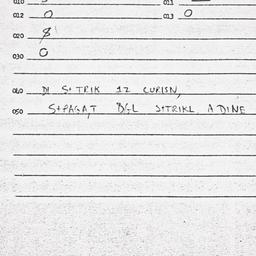 010 011
012 0 013 0
020 8
030 0
040 DI S+TRIK 12 CURISN,
050 S+PAGA,T DGL S+TRIKL A DINE